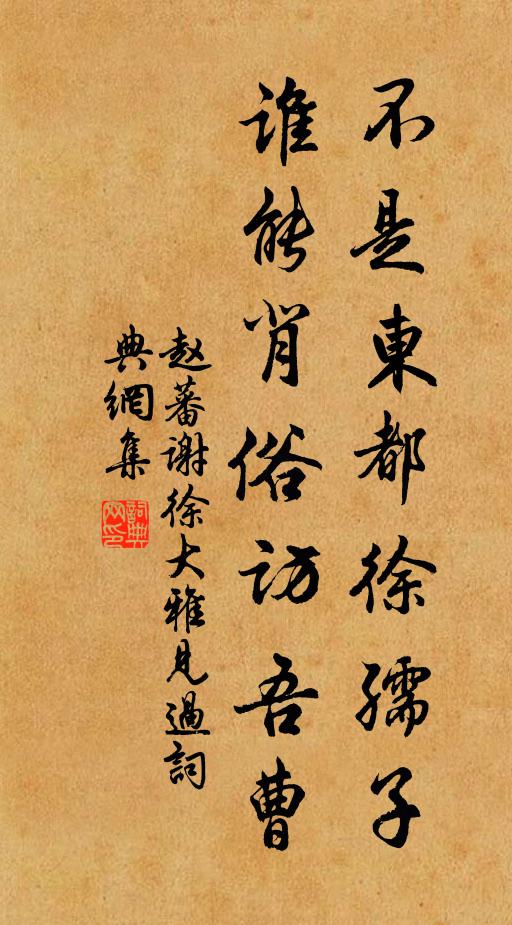 不是東都徐孺子
谁能肖俗访吾曹
赵蕃谢徐大雅見過詞
典網集
詞典
网印